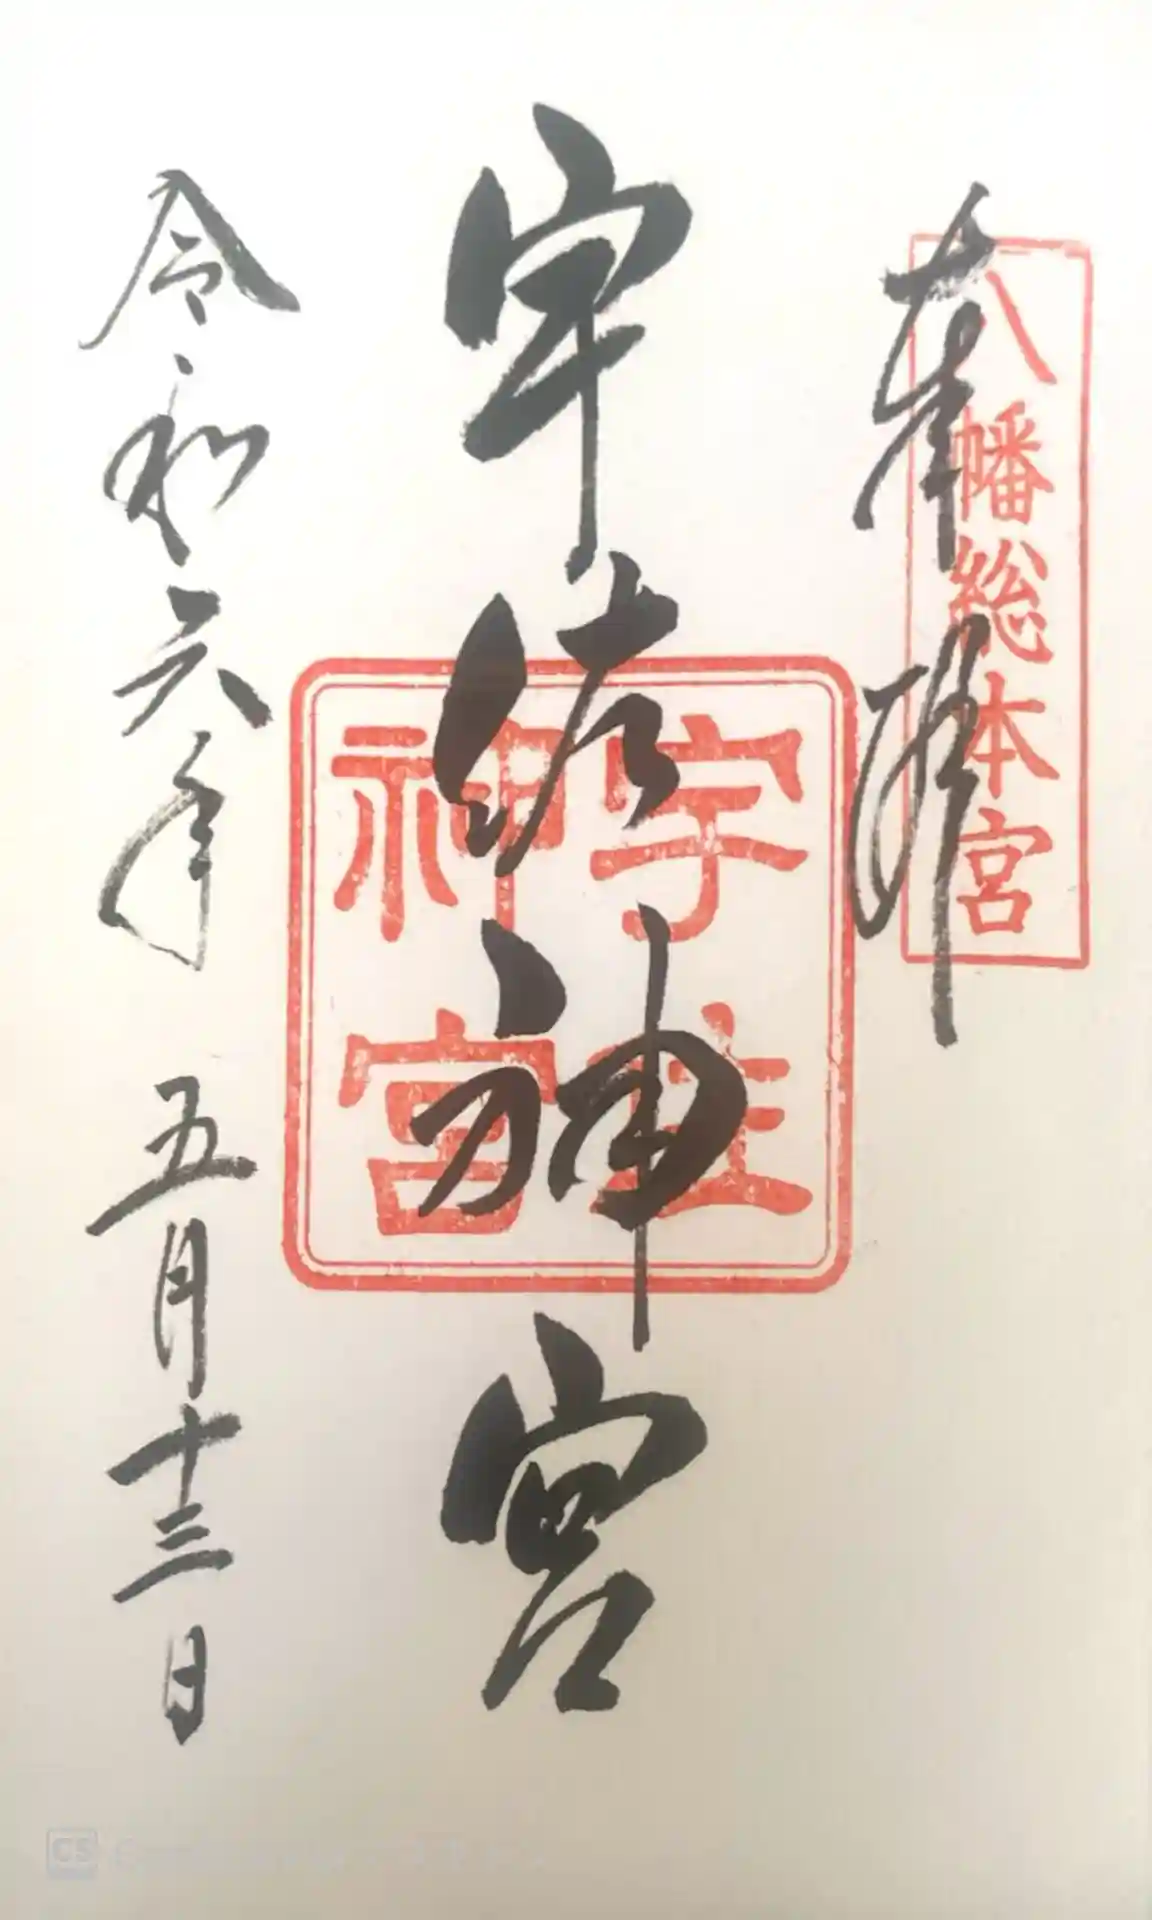 奉拝
八幡総本宮
宇佐神宮
宇佐神宮
令和六年 五月十三日
CS